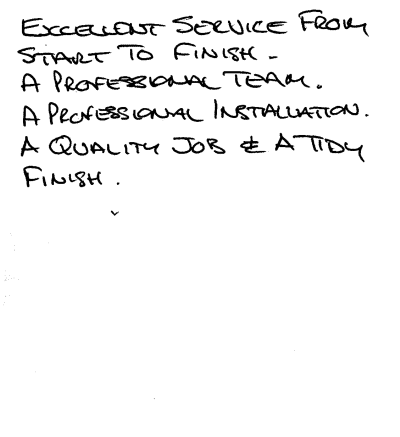 EXCELLENT SERVICE FROM
START TO FINISH -
A PROFESSIONAL TEAM.
A PROFESSIONAL INSTALLATION.
A QUALITY JOB & A TIDY
FINISH.